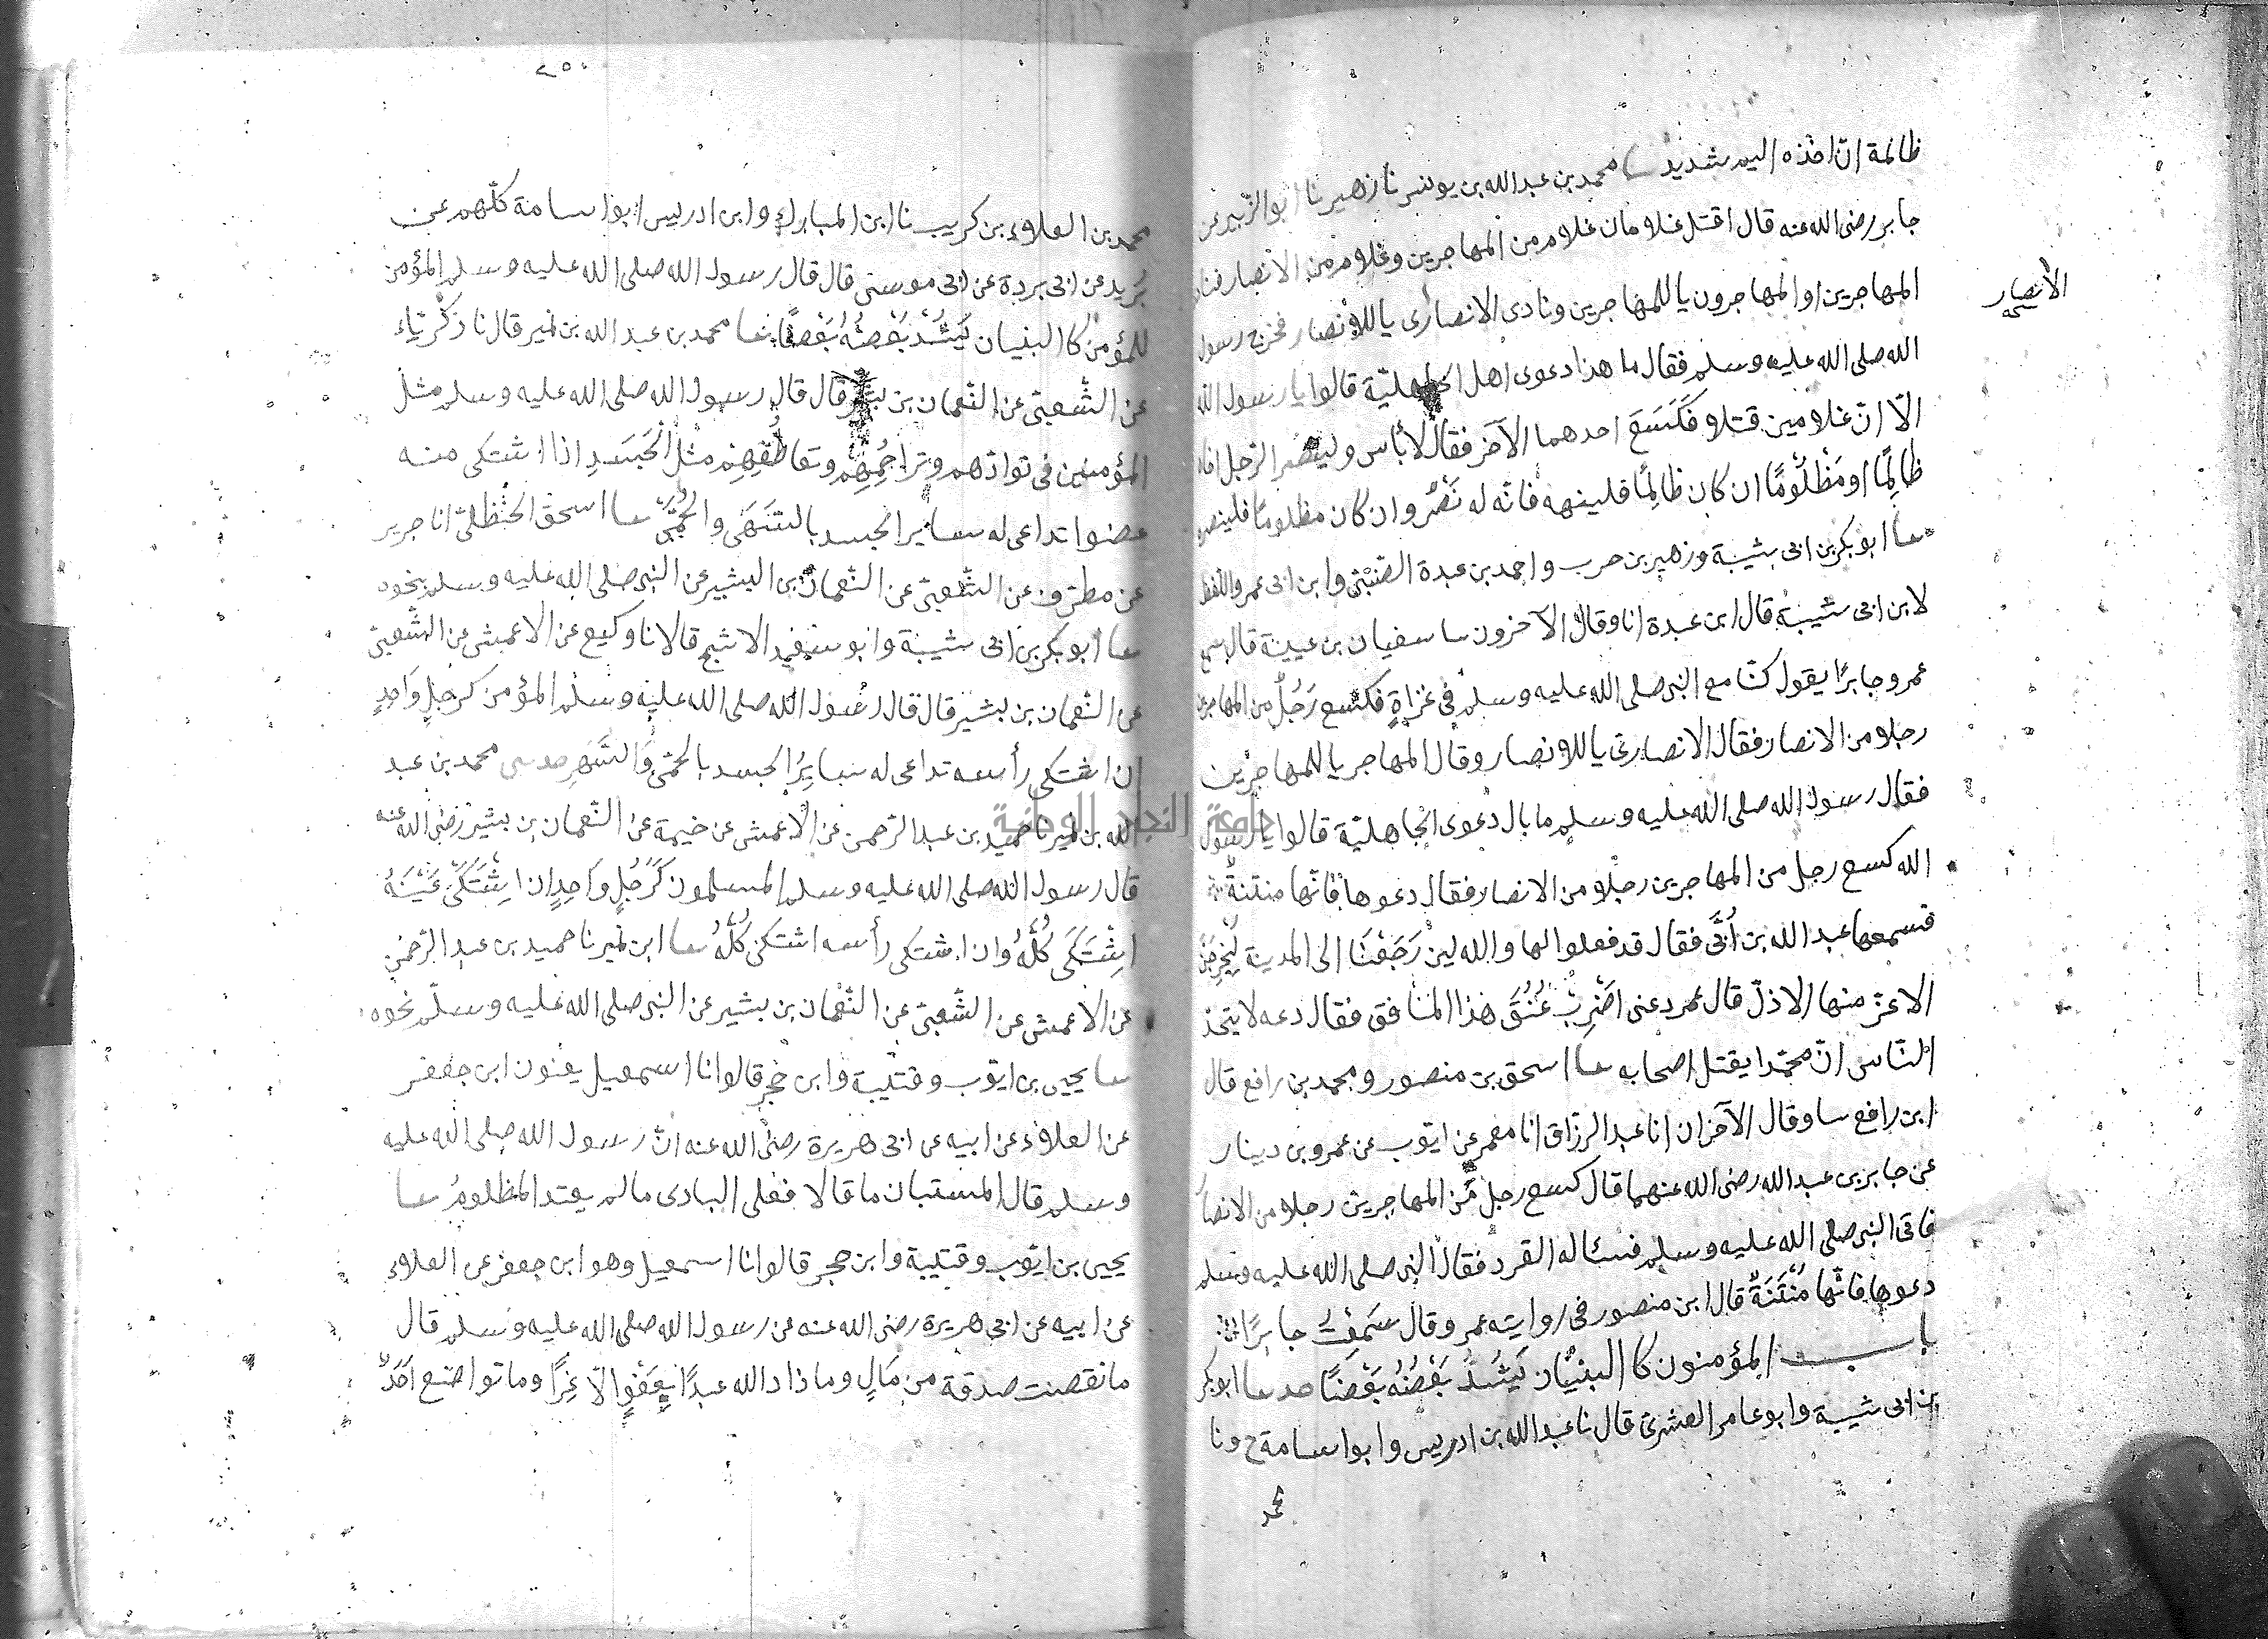 ظالمة ان اخذه اليم شديد نا محمد بن عبد الله بن يونس نا زهير نا ابو الزبير عن
جابر رضى الله عنه قال اقتتل غلامان غلام من المهاجرين وغلام من الانصار فنادى
المهاجرين او المهاجرون يا للمهاجرين ونادى الانصارى يا للانصار فخرج رسول
الانصار صح
الله صلى الله عليه وسلم فقال ما هذا دعوى اهل الجاهلية قالوا يا رسول الله
الا ان غلامين قتلا فكسع احدهما الآخر فقال لا بأس ولينصر الرجل اخاه
ظالما او مظلوما ان كان ظالما فلينهه فانه له نصر وان كان مظلوما فلينصره
نا ابو بكر بن ابى شيبة وزهير بن حرب واحمد بن عبدة الضبى وابن ابى عمر واللفظ
لابن ابى شيبة قال ابن عبدة انا وقال الآخرون نا سفيان بن عيينة قال سمع
عمرو جابرا يقول كنا مع النبى صلى الله عليه وسلم فى غزاة فكسع رجل من المهاجرين
رجلا من الانصار فقال الانصارى يا للانصار وقال المهاجر يا للمهاجرين
فقال رسول الله صلى الله عليه وسلم ما بال دعوى الجاهلية قالوا يا رسول
الله كسع رجل من المهاجرين رجلا من الانصار فقال دعوها فانها منتنة
فسمعها عبد الله بن أبى فقال قد فعلوالها والله لين رجعنا الى المدينة ليخرجن
الاعز منها الاذل قال عمر دعنى اضرب عنق هذا المنافق فقال دعه لا يتحد
الناس ان محمدا يقتل اصحابه نا اسحق بن منصور ومحمد بن رافع قال
ابن رافع نا وقال الآخران انا عبد الرزاق انا معمر عن ايوب عن عمرو بن دينار
عن جابر بن عبد الله رضى الله عنهما قال كسع رجل من المهاجرين رجلا من الانصار
فاتى النبى صلى الله عليه وسلم فسئاله القرد فقال النبى صلى الله عليه وسلم
دعوها فانها منتنة قال ابن منصور فى روايته عمر وقال سمعت جابرا
باب المؤمنون كالبنيان يشد بعضه بعضا حدنا ابو بكر
بن ابى شيبة وابو عامر العشرى قال نا عبد الله بن ادريس وابو اسامة ح ونا
محمد
٢٥٠
محمد بن العلاء بن كريب نا ابن المبارك وابن ادريس ابو اسامة كلهم عن
بريد عن ابى بردة عن ابى موسى قال قال رسول الله صلى الله عليه وسلم المؤمن
للمؤمن كالبنيان يشد بعضه بعضا نا محمد بن عبد الله بن نمير قال نا زكرياء
عن الشعبى عن النعمان بن بشير قال قال رسول الله صلى الله عليه وسلم مثل
المؤمنين فى توادهم وتراحمهم وتعاطفهم مثل الجسد اذا اشتكى منه
عضوا تداعى له ساير الجسد بالسهى والحمى نا اسحق الحنظلى انا جرير
عن مطرف عن الشعبى عن النعمان بن البشير عن النبى صلى الله عليه وسلم بنحوه
نا ابو بكر بن ابى شيبة وابو سعيد الاشج قالا نا وكيع عن الاعمش عن الشعبى
عن النعمان بن بشير قال قال رسول الله صلى الله عليه وسلم المؤمن كرجل واحد
ان اشتكى رأسه تداعى له ساير الجسد بالحمى والسهر حدثنى محمد بن عبد
الله بن نمير نا حميد بن عبد الرحمن عن الاعمش عن خيمة عن النعمان بن بشير رضى الله عنه
قال رسول الله صلى الله عليه وسلم المسلمون كرجل واحد ان اشتكى عينه
اشتكى كله وان اشتكى رأسه اشتكى كله نا ابن نمير نا حميد بن عبد الرحمن
عن الاعمش عن الشعبى عن النعمان بن بشير عن النبى صلى الله عليه وسلم نحوه
نا يحيى بن ايوب وقتيبة وابن حجر قالوا نا اسمعيل يعنون ابن جعفر
عن العلاء عن ابيه عن ابى هريرة رضى الله عنه ان رسول الله صلى الله عليه
وسلم قال المستبان ما قالا فعلى البادى ما لم يعتد المظلوم نا
يحيى بن ايوب وقتيبة وابن حجر قالوا نا اسمعيل وهو ابن جعفر عن العلاء
عن ابيه عن ابى هريرة رضى الله عنه عن رسول الله صلى الله عليه وسلم قال
ما نقصت صدقة من مال وما ذاد الله عبدا بعفو الا عزا وما تواضع احد
جامعة النجاح الوطنية